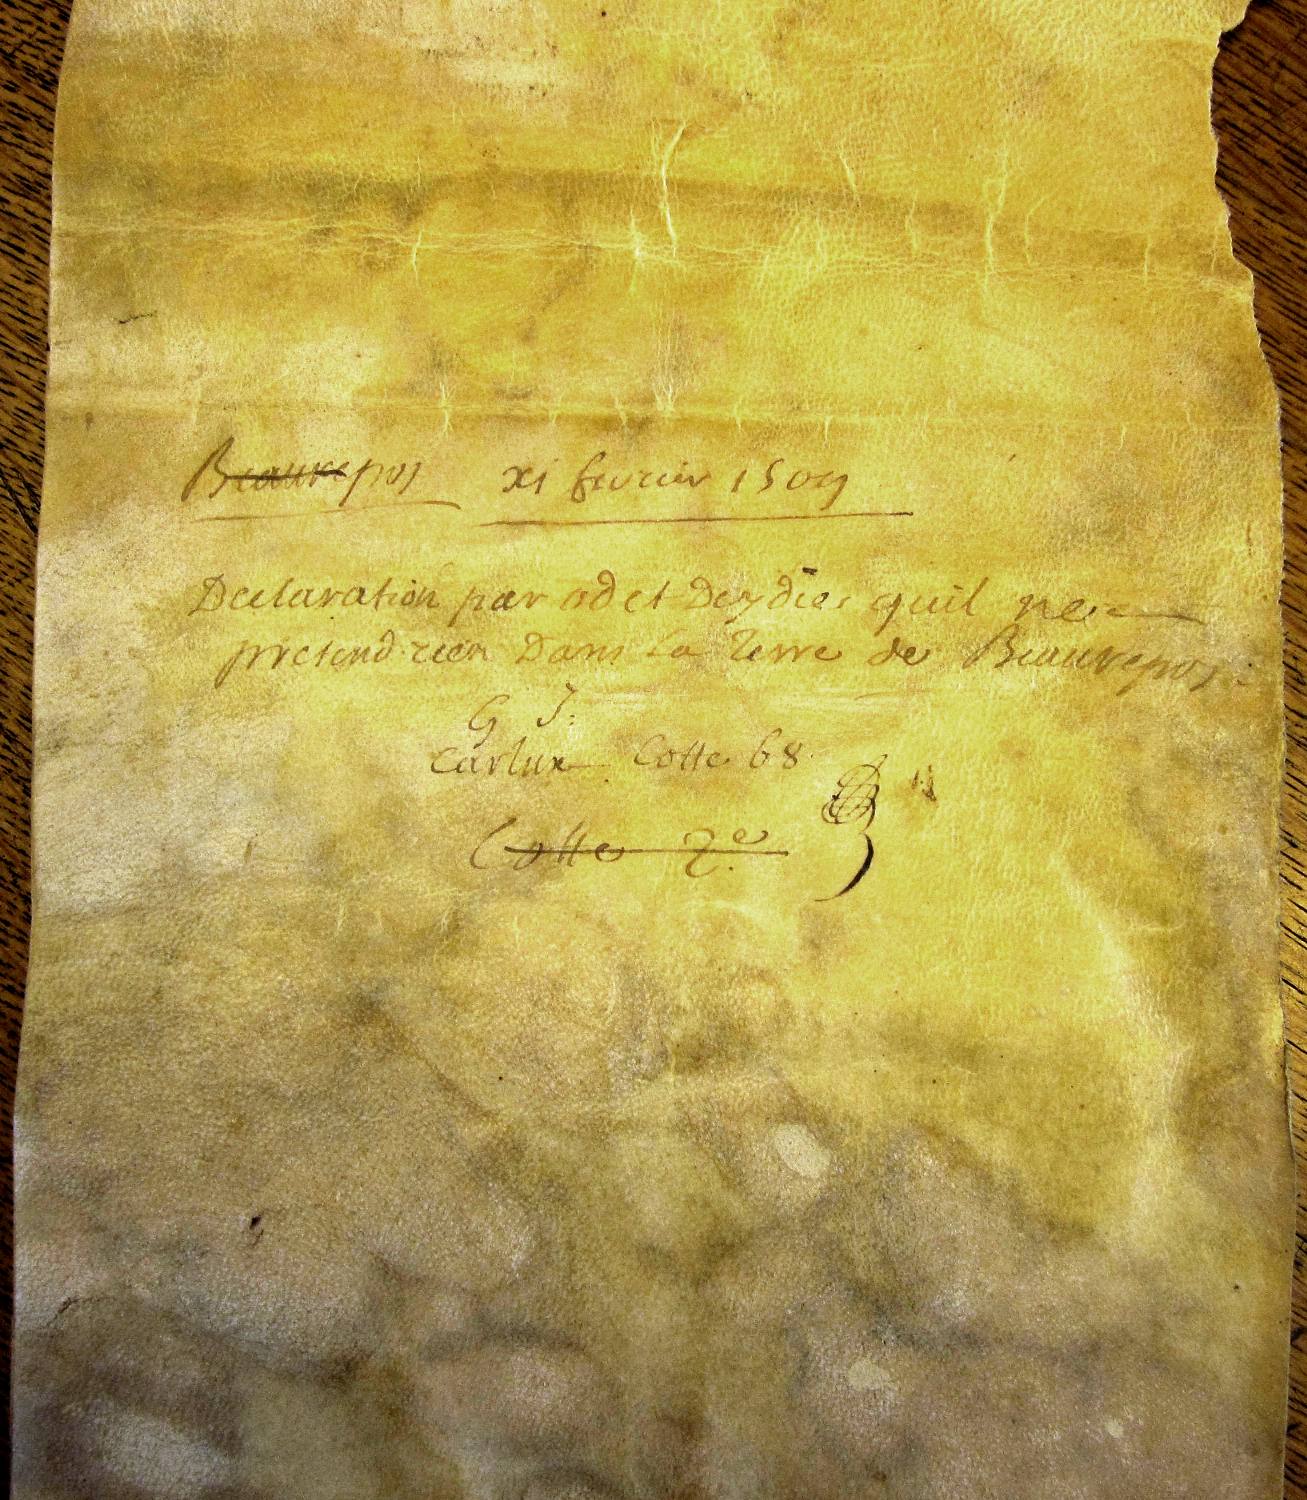 Beaurepos xi fevrier 1509
Declaration par odet Deydies quil ne
pretend rien Dans La Terre de Beaurepos
G J:
Carlux Cotte 68
Cotte 2e